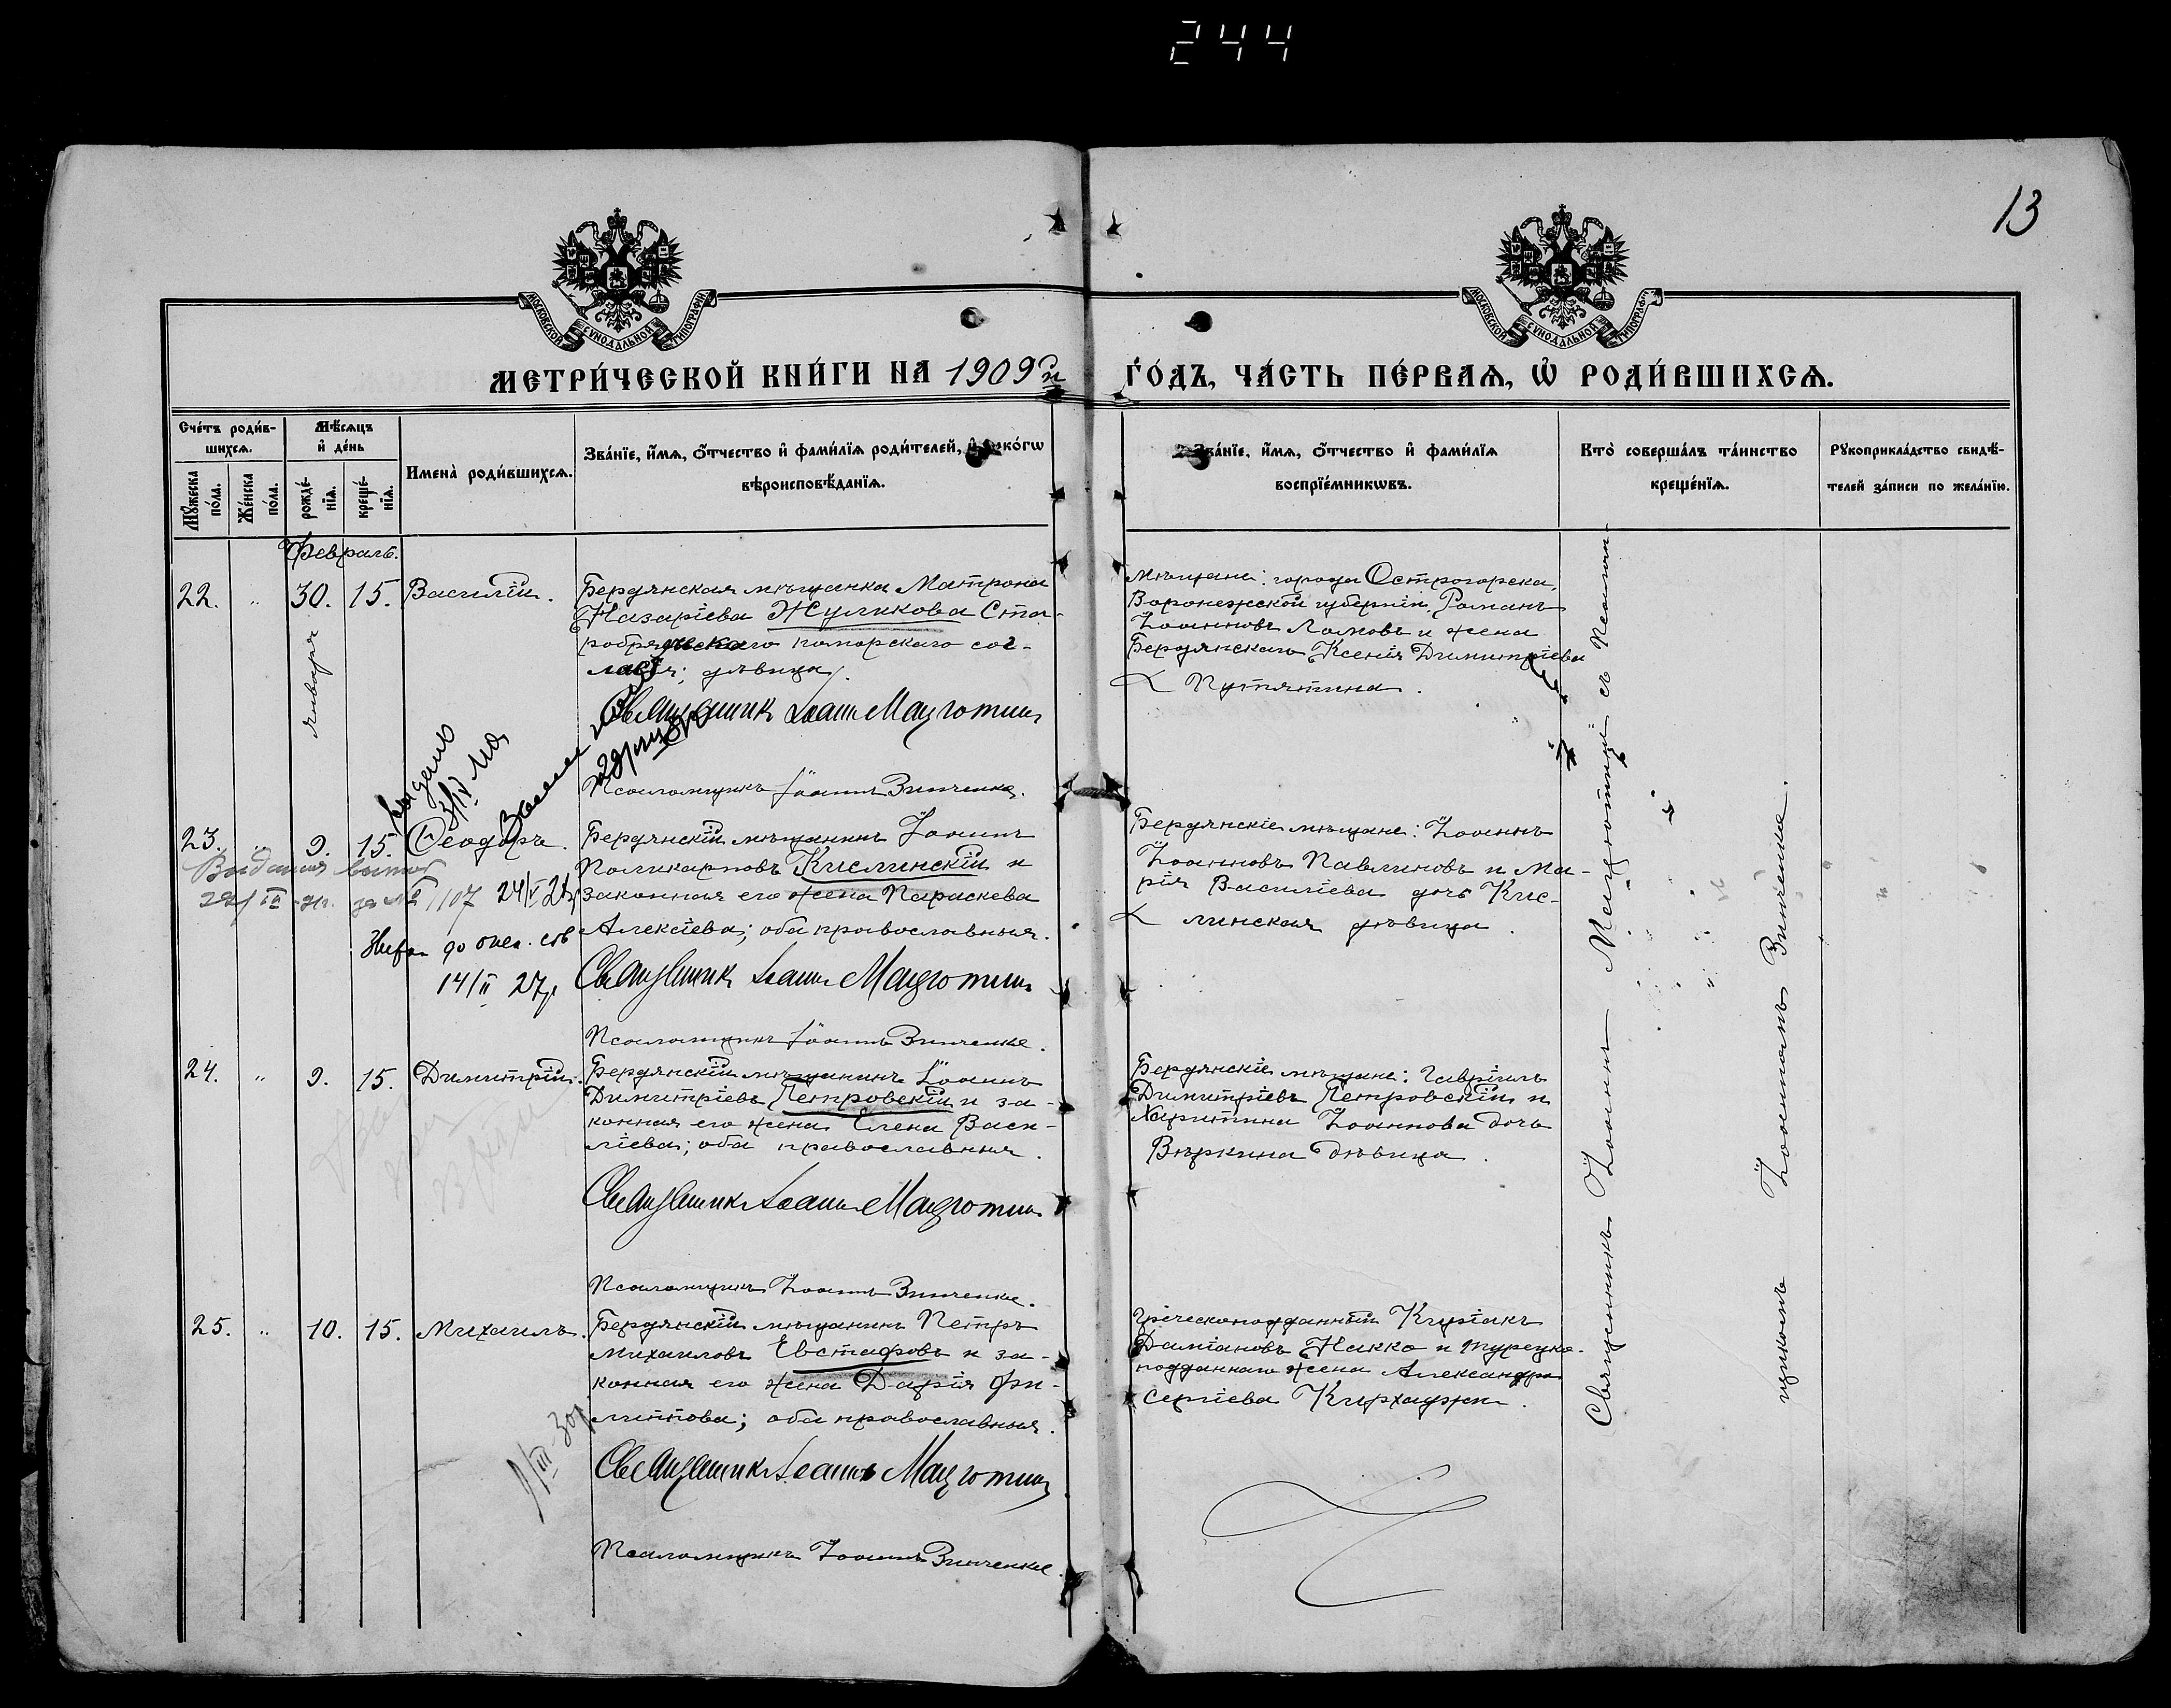 244
13
МОСКОВСКОЙ СѴНОДАЛЬНОЙ ТИПОГРАФІИ
МОСКОВСКОЙ СѴНОДАЛЬНОЙ ТИПОГРАФІИ
МЕТРИ́ЧЕСКОЙ КНИ́ГИ НА 1909й
ГО́ДЪ, ЧА́СТЬ ПЕ́РВАѦ, Ѡ҆ РОДИ́ВШИХСѦ.
Сче́тъ роди́в-
шихсѧ.
Мѣ́сѧцъ
и҆ де́нь
Мꙋ́жеска по́ла.
Же́нска по́ла.
рожде́-
нїѧ.
креще́-
нїѧ.
Имена̀ роди́вшихсѧ.
Зва́нїе, и҆́мѧ, ѻ҆́тчество и҆ фами́лїѧ роди́телей, и҆ како́гѡ
вѣроисповѣ́данїѧ.
Зва́нїе, и҆́мѧ, ѻ҆́тчество и҆ фами́лїѧ
воспрїе́мникѡвъ.
Кто̀ соверша́лъ та́инство
креще́нїѧ.
Рꙋкоприкла́дство свидѣ́-
телей за́писи по жела́нїю.
Февраль.
22. " 30. 15. Василій.
января
Бердянская мѣщанка Матрона
Назаріева Жуликова Ста-
рообрядческаго поморскаго сог-
ласія; дѣвица.
Священник Іоанн Мацготин
Псаломщикъ Іоаннъ Зинченко.
Мѣщане: города Острогорска,
Воронежской губерніи, Романъ
Іоанновъ Ломовъ и жена
Бердянскаго Ксенія Димитріева
Путятина.
23. " 9. 15. Ѳеодоръ.
№ 1107 24/V
14/II 27г.
Бердянскій мѣщанинъ Іоаннъ
Поликарповъ Кислинскій и
законная его жена Параскева
Алексіева; оба православныя.
Священник Іоанн Мацготин
Псаломщикъ Іоаннъ Зинченко.
Бердянскіе мѣщане: Іоаннъ
Іоанновъ Павлиновъ и Ма-
рія Василіева дочь Кис-
линская дѣвица.
24. " 9. 15. Димитрій.
Бердянскій мѣщанинъ Іоаннъ
Димитріевъ Петровскій и за-
конная его жена Елена Васи-
ліева; оба православныя.
Священник Іоанн Мацготин
Псаломщикъ Іоаннъ Зинченко.
Бердянскіе мѣщане: Гавріилъ
Димитріевъ Петровскій и
Харитина Іоаннова дочь
Вѣркина дѣвица.
25. " 10. 15. Михаилъ.
Бердянскій мѣщанинъ Петръ
Михаиловъ Евстафовъ и за-
конная его жена Дарія Фи-
липпова; оба православныя.
Священник Іоаннъ Мацготин
Псаломщикъ Іоаннъ Зинченко.
Греческоподданный Киріакъ
Даміановъ Накко и турецко-
подданнаго жена Александра
Сергіева Кирхаджи.
Священникъ Іоаннъ Мацготинъ съ Псалом-
щикомъ Іоанномъ Зинченко.